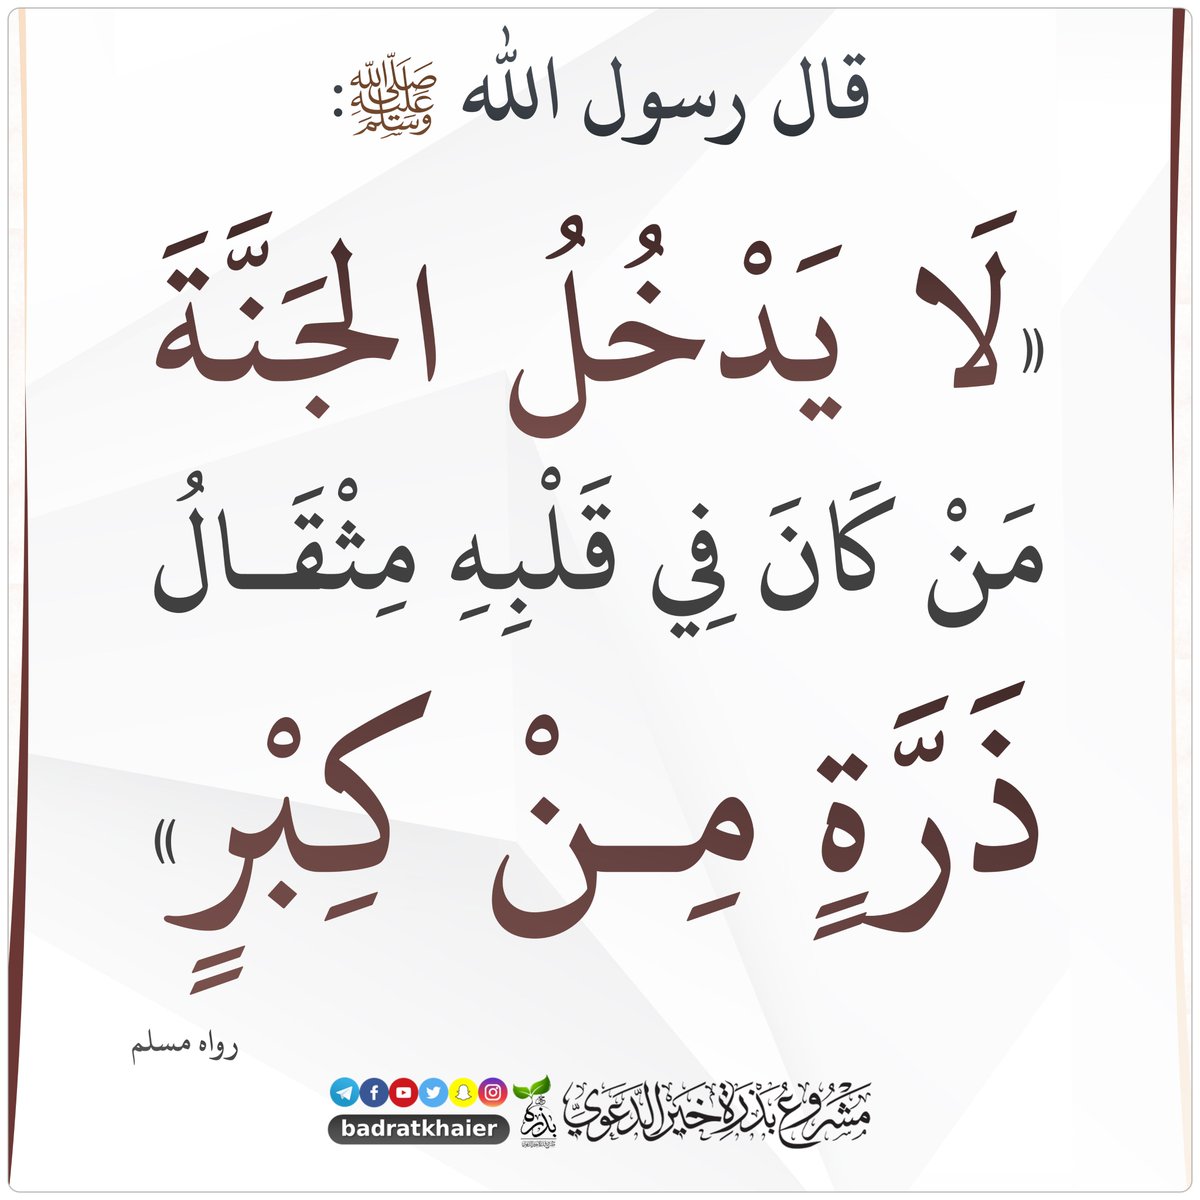 قال رسول الله ﷺ:
((لَا يَدْخُلُ الجَنَّةَ
مَنْ كَانَ فِي قَلْبِهِ مِثْقَالُ
ذَرَّةٍ مِنْ كِبْرٍ))
رواه مسلم
مَشْرُوعُ بَذْرَةِ خَيْرٍ الدَّعَوِيّ
بذرة
badratkhaier